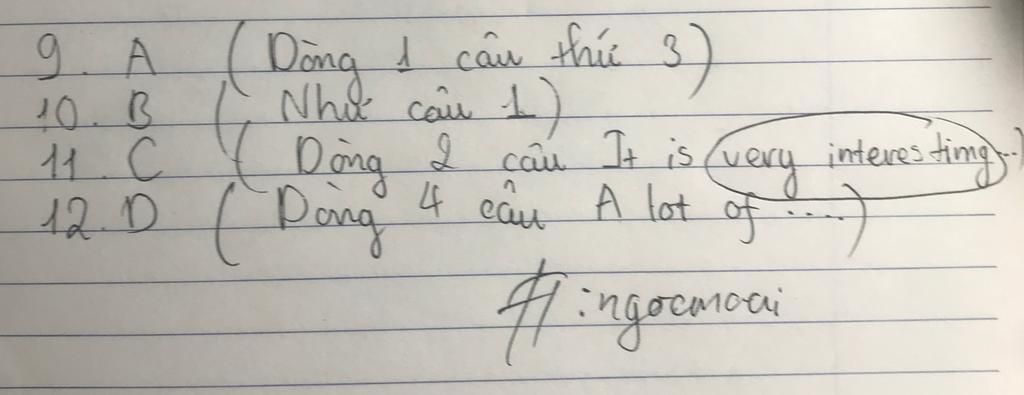 9. A (Dòng 1 câu thứ 3)
10. B (Như câu 1)
11. C (Dòng 2 câu It is very interesting...)
12. D (Dòng 4 câu A lot of ....)
#:ngocmoai